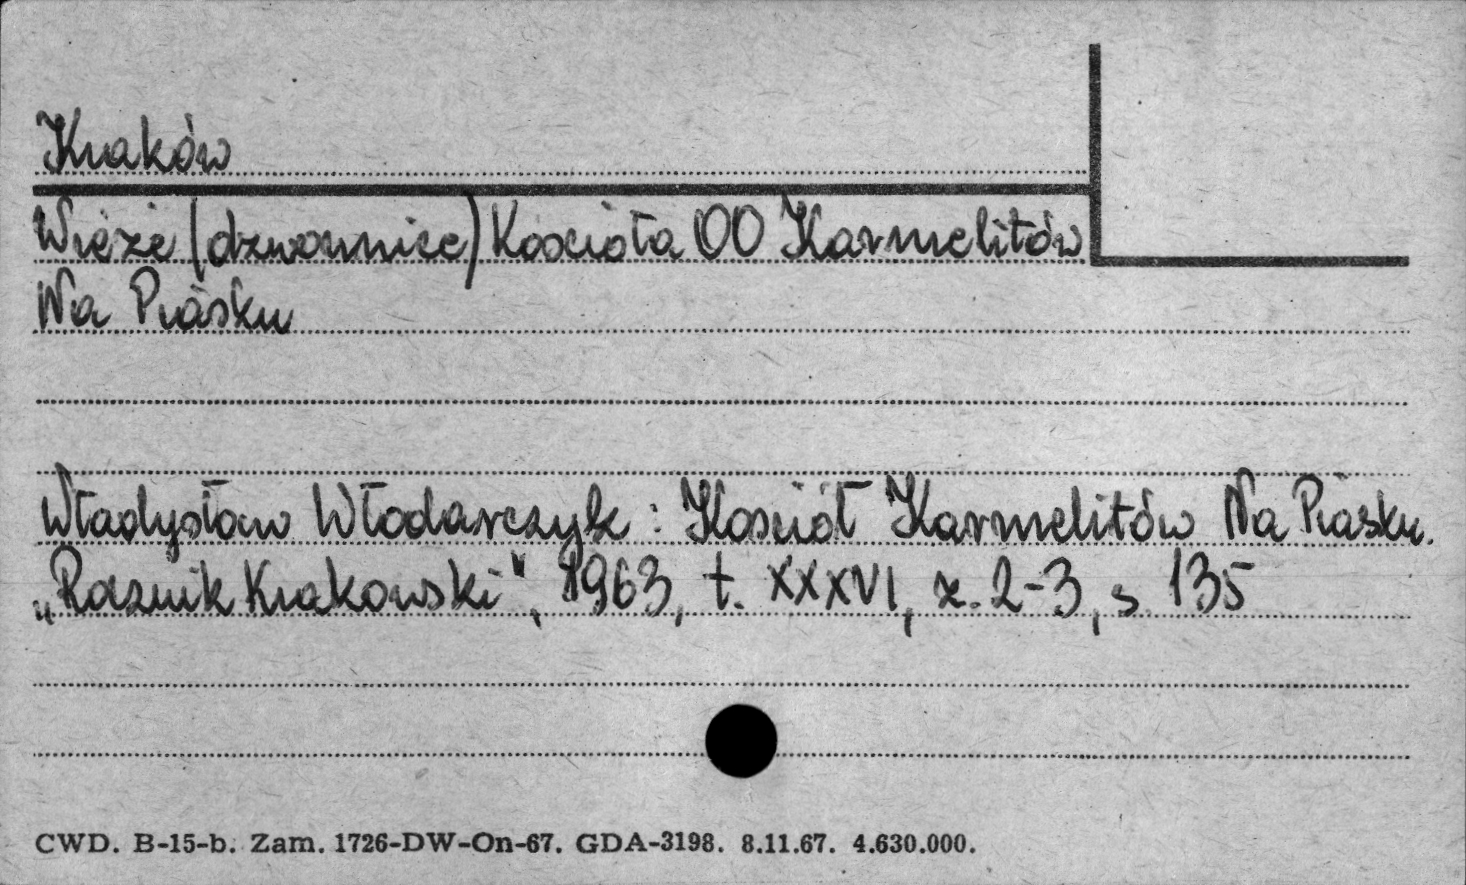 Kraków
Wieże (dzwonnice) Kościoła OO Karmelitów
Na Piasku
Władysław Włodarczyk : Kościół Karmelitów Na Piasku.
„Rocznik Krakowski", 1963, t. XXXVI, z. 2-3, s 135
CWD. B-15-b. Zam. 1726-DW-On-67. GDA-3198. 8.11.67. 4.630.000.